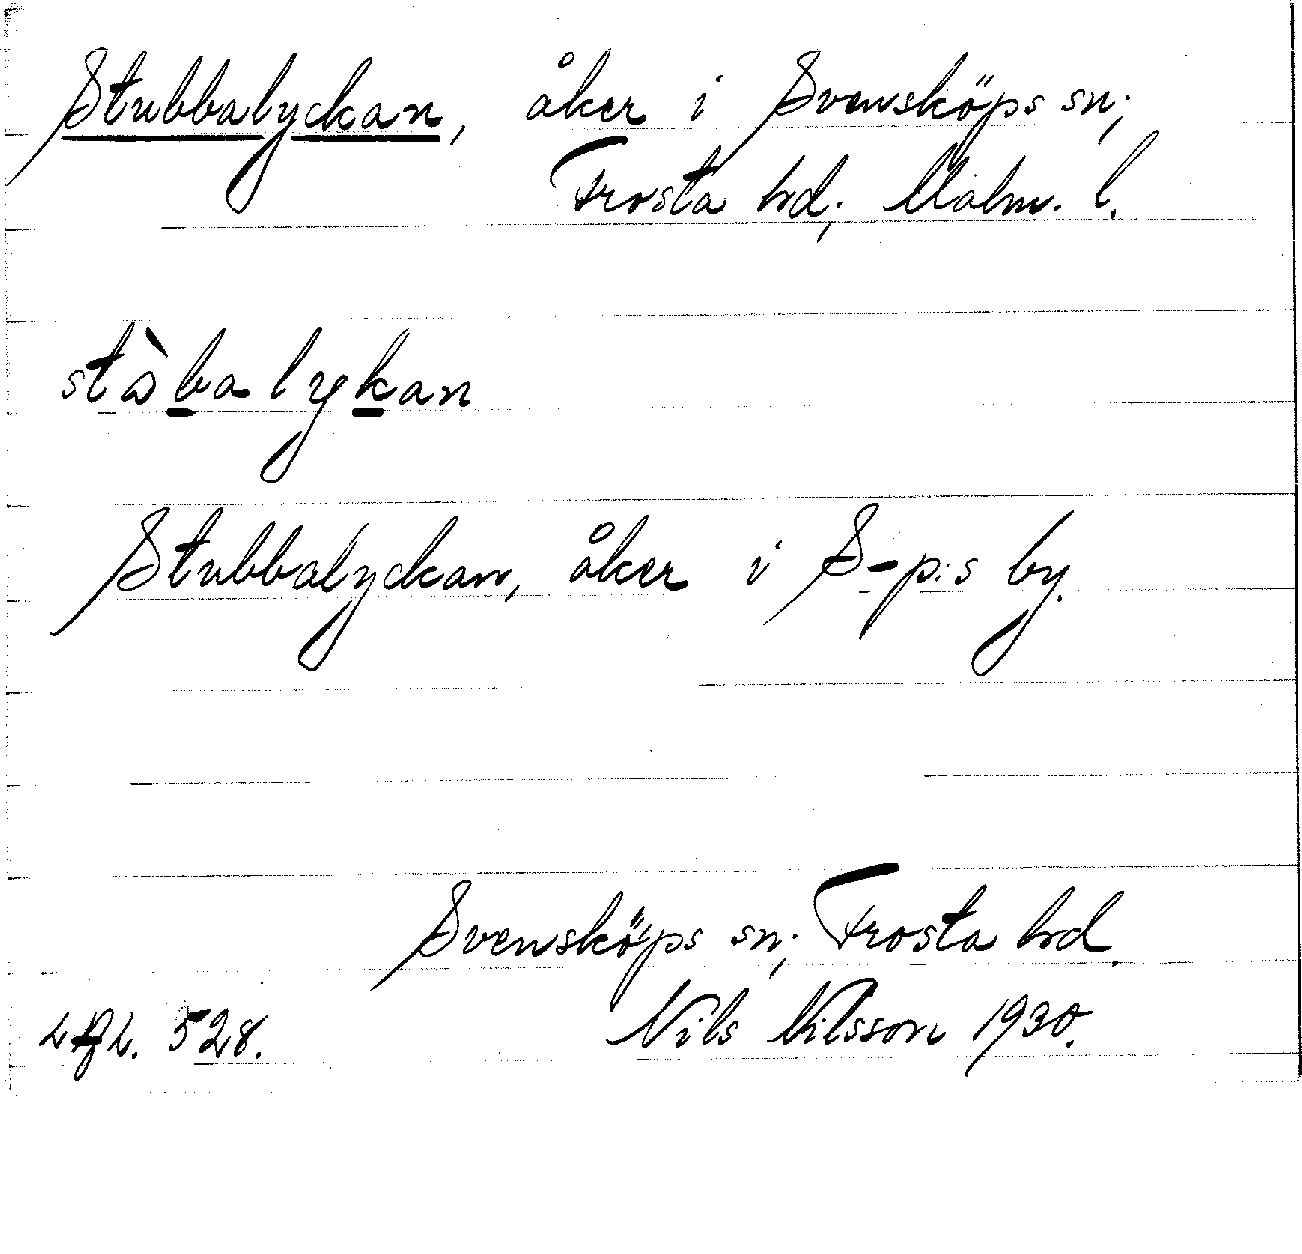 Stubbalyckan, åker i Svensköps sn;
Frosta hd; Malm. l.
Stubbalyckan, åker i S-p:s by.
Svensköps sn; Frosta hd.
528. Nils Nilsson 1930.